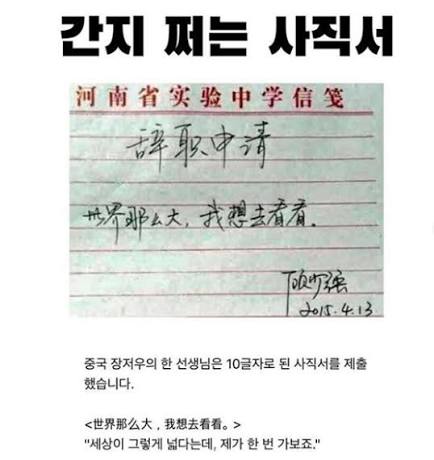 간지 쩌는 사직서
河南省实验中学信笺
辞职申请
世界那么大，我想去看看。
顾少强
2015.4.13
중국 장저우의 한 선생님은 10글자로 된 사직서를 제출
했습니다.
<世界那么大，我想去看看。>
"세상이 그렇게 넓다는데, 제가 한 번 가보죠."